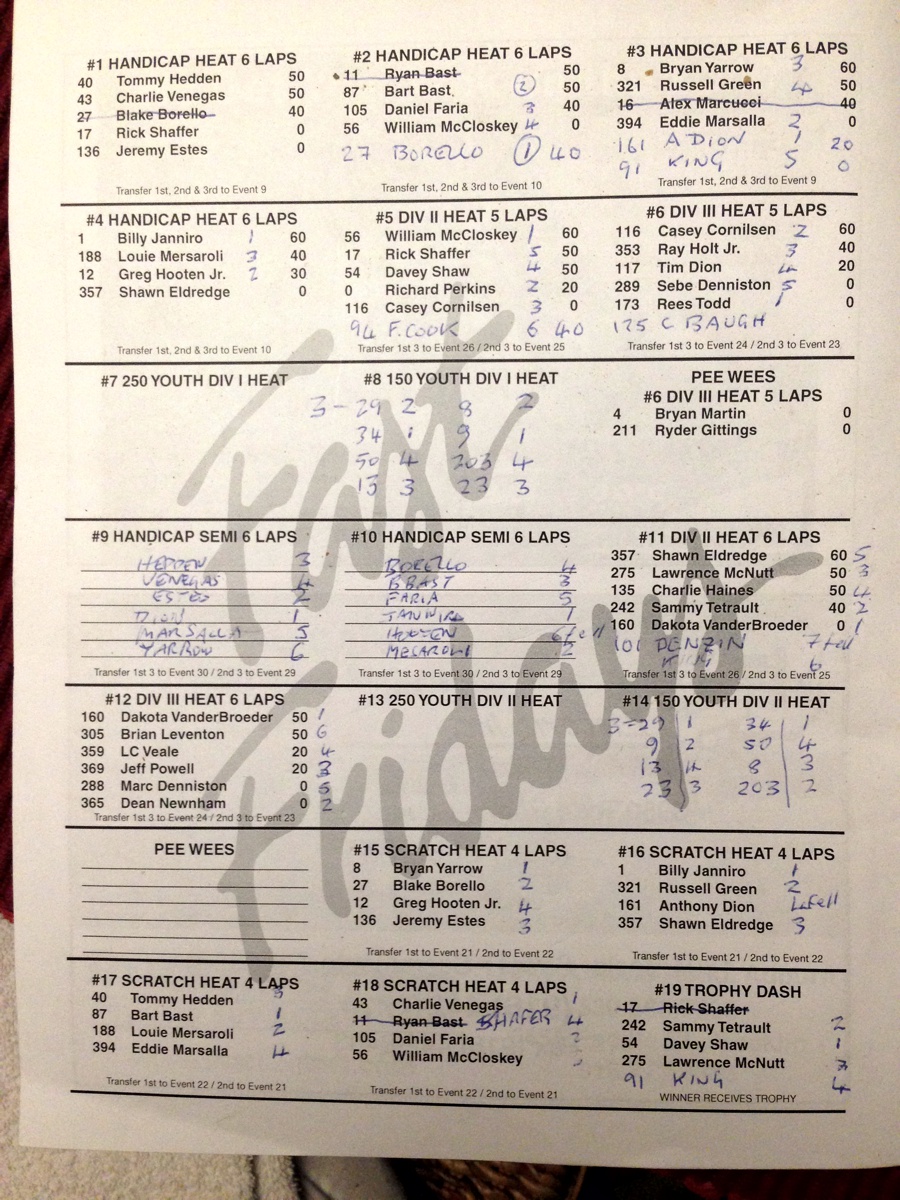 #1 HANDICAP HEAT 6 LAPS
40 Tommy Hedden 50
43 Charlie Venegas 50
27 Blake Borello 40
17 Rick Shaffer 0
136 Jeremy Estes 0
Transfer 1st, 2nd & 3rd to Event 9
#2 HANDICAP HEAT 6 LAPS
11 Ryan Bast 50
87 Bart Bast 2 50
105 Daniel Faria 3 40
56 William McCloskey 4 0
27 BORELLO 1 40
Transfer 1st, 2nd & 3rd to Event 10
#3 HANDICAP HEAT 6 LAPS
8 Bryan Yarrow 3 60
321 Russell Green 4 50
16 Alex Marcucci 40
394 Eddie Marsalla 2 0
161 A DION 1 20
91 KING 5 0
Transfer 1st, 2nd & 3rd to Event 9
#4 HANDICAP HEAT 6 LAPS
1 Billy Janniro 1 60
188 Louie Mersaroli 3 40
12 Greg Hooten Jr. 2 30
357 Shawn Eldredge 0
Transfer 1st, 2nd & 3rd to Event 10
#5 DIV II HEAT 5 LAPS
56 William McCloskey 1 60
17 Rick Shaffer 5 50
54 Davey Shaw 4 50
0 Richard Perkins 2 20
116 Casey Cornilsen 3 0
94 F. COOK 6 40
Transfer 1st 3 to Event 26 / 2nd 3 to Event 25
#6 DIV III HEAT 5 LAPS
116 Casey Cornilsen 2 60
353 Ray Holt Jr. 3 40
117 Tim Dion 4 20
289 Sebe Denniston 5 0
173 Rees Todd 1 0
125 C BAUGH
Transfer 1st 3 to Event 24 / 2nd 3 to Event 23
#7 250 YOUTH DIV I HEAT
#8 150 YOUTH DIV I HEAT
3-29 2 8 2
34 1 9 1
50 4 203 4
13 3 23 3
PEE WEES
#6 DIV III HEAT 5 LAPS
4 Bryan Martin 0
211 Ryder Gittings 0
#9 HANDICAP SEMI 6 LAPS
HEDDEN 3
VENEGAS 4
ESTES 2
DION 1
MARSALLA 5
YARROW 6
Transfer 1st 3 to Event 30 / 2nd 3 to Event 29
#10 HANDICAP SEMI 6 LAPS
BORELLO 4
BBAST 3
FARIA 5
JANNIRO 1
HOOTEN 6 fell
MESAROLI 2
Transfer 1st 3 to Event 30 / 2nd 3 to Event 29
#11 DIV II HEAT 6 LAPS
357 Shawn Eldredge 60 5
275 Lawrence McNutt 50 3
135 Charlie Haines 50 4
242 Sammy Tetrault 40 2
160 Dakota VanderBroeder 0 1
101 DENZIN 7 fell
KING 6
Transfer 1st 3 to Event 26 / 2nd 3 to Event 25
#12 DIV III HEAT 6 LAPS
160 Dakota VanderBroeder 50 1
305 Brian Leventon 50 6
359 LC Veale 20 4
369 Jeff Powell 20 3
288 Marc Denniston 0 5
365 Dean Newnham 0 2
Transfer 1st 3 to Event 24 / 2nd 3 to Event 23
#13 250 YOUTH DIV II HEAT
#14 150 YOUTH DIV II HEAT
3-29 1 34 1
9 2 50 4
13 4 8 3
23 3 203 2
PEE WEES
#15 SCRATCH HEAT 4 LAPS
8 Bryan Yarrow 1
27 Blake Borello 2
12 Greg Hooten Jr. 4
136 Jeremy Estes 3
Transfer 1st to Event 21 / 2nd to Event 22
#16 SCRATCH HEAT 4 LAPS
1 Billy Janniro 1
321 Russell Green 2
161 Anthony Dion 4 fell
357 Shawn Eldredge 3
Transfer 1st to Event 21 / 2nd to Event 22
#17 SCRATCH HEAT 4 LAPS
40 Tommy Hedden 3
87 Bart Bast 1
188 Louie Mersaroli 2
394 Eddie Marsalla 4
Transfer 1st to Event 22 / 2nd to Event 21
#18 SCRATCH HEAT 4 LAPS
43 Charlie Venegas 1
11 Ryan Bast SHAFER 4
105 Daniel Faria
56 William McCloskey
Transfer 1st to Event 22 / 2nd to Event 21
#19 TROPHY DASH
17 Rick Shaffer
242 Sammy Tetrault 2
54 Davey Shaw 1
275 Lawrence McNutt 3
91 KING 4
WINNER RECEIVES TROPHY
Fast
Fridays